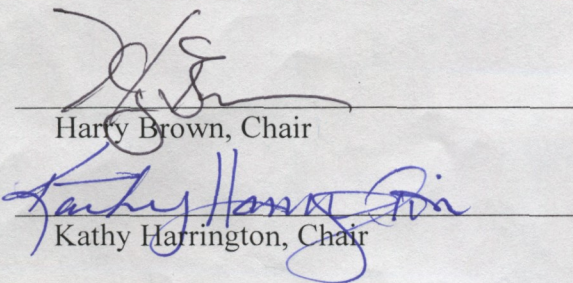 Harry Brown, Chair
Kathy Harrington
Kathy Harrington, Chair